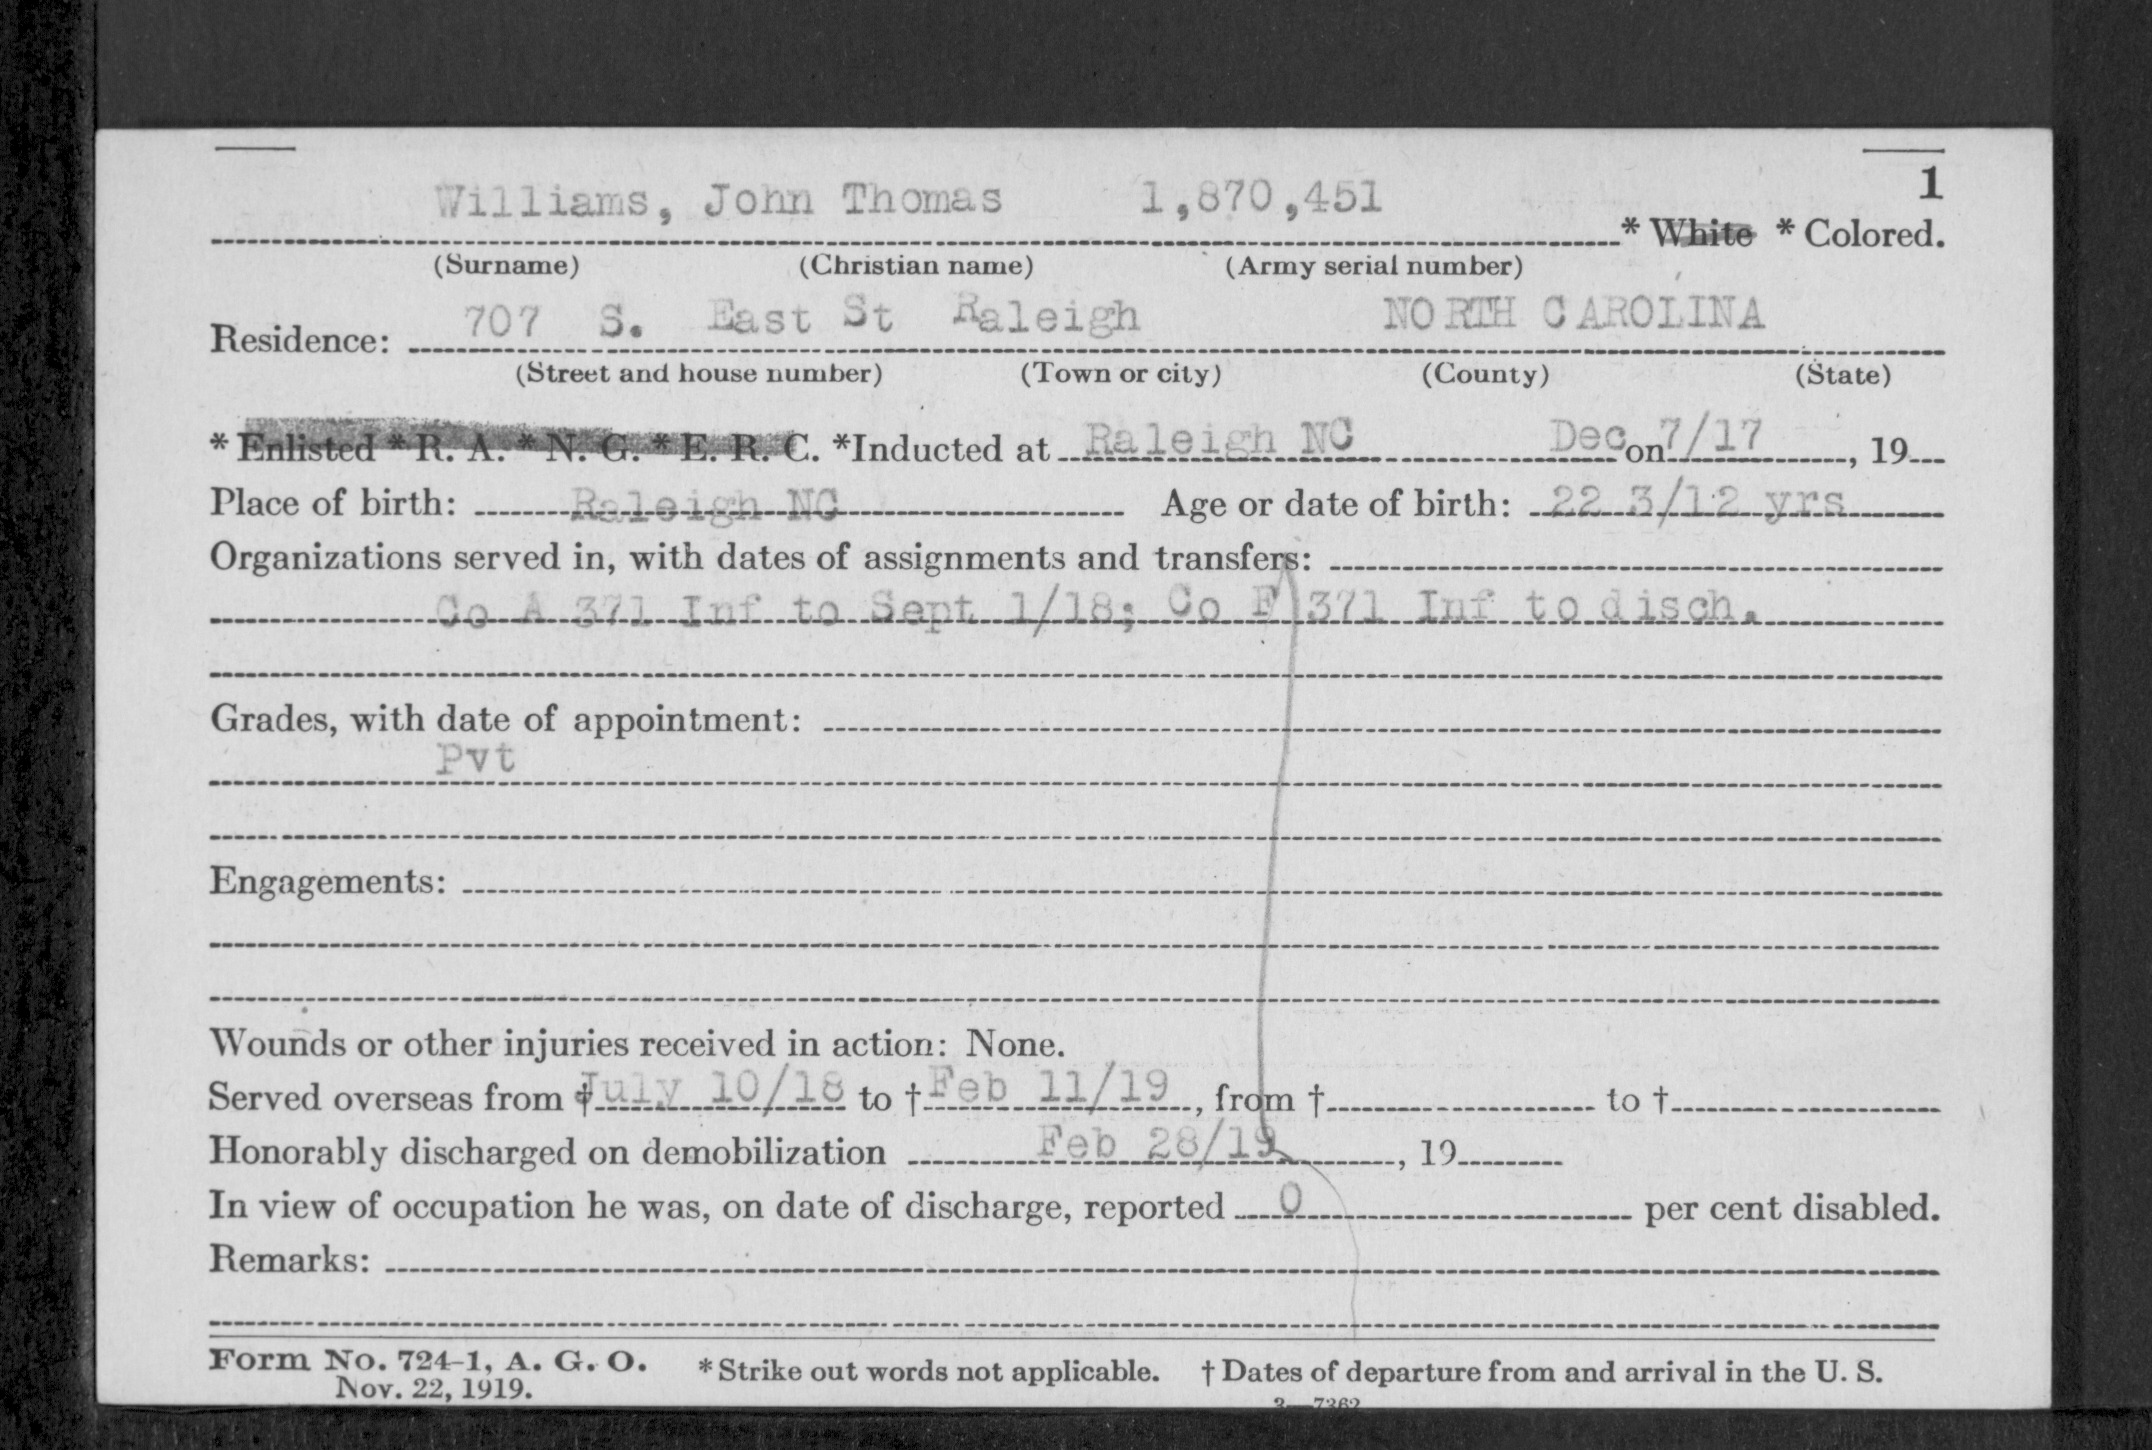 1
Williams, John Thomas 1,870,451 * White * Colored.
(Surname) (Christian name) (Army serial number)
Residence: 707 S. East St Raleigh NORTH CAROLINA
(Street and house number) (Town or city) (County) (State)
* Enlisted * R. A. * N. G. * E. R. C. *Inducted at Raleigh NC Dec on 7/17, 19
Place of birth: Raleigh NC Age or date of birth: 22 3/12 yrs
Organizations served in, with dates of assignments and transfers:
Co A 371 Inf to Sept 1/18; Co F 371 Inf to disch.
Grades, with date of appointment:
Pvt
Engagements:
Wounds or other injuries received in action: None.
Served overseas from † July 10/18 to † Feb 11/19, from † to †
Honorably discharged on demobilization Feb 28/19, 19
In view of occupation he was, on date of discharge, reported 0 per cent disabled.
Remarks:
Form No. 724-1, A. G. O. * Strike out words not applicable. † Dates of departure from and arrival in the U. S.
Nov. 22, 1919.
3—7362